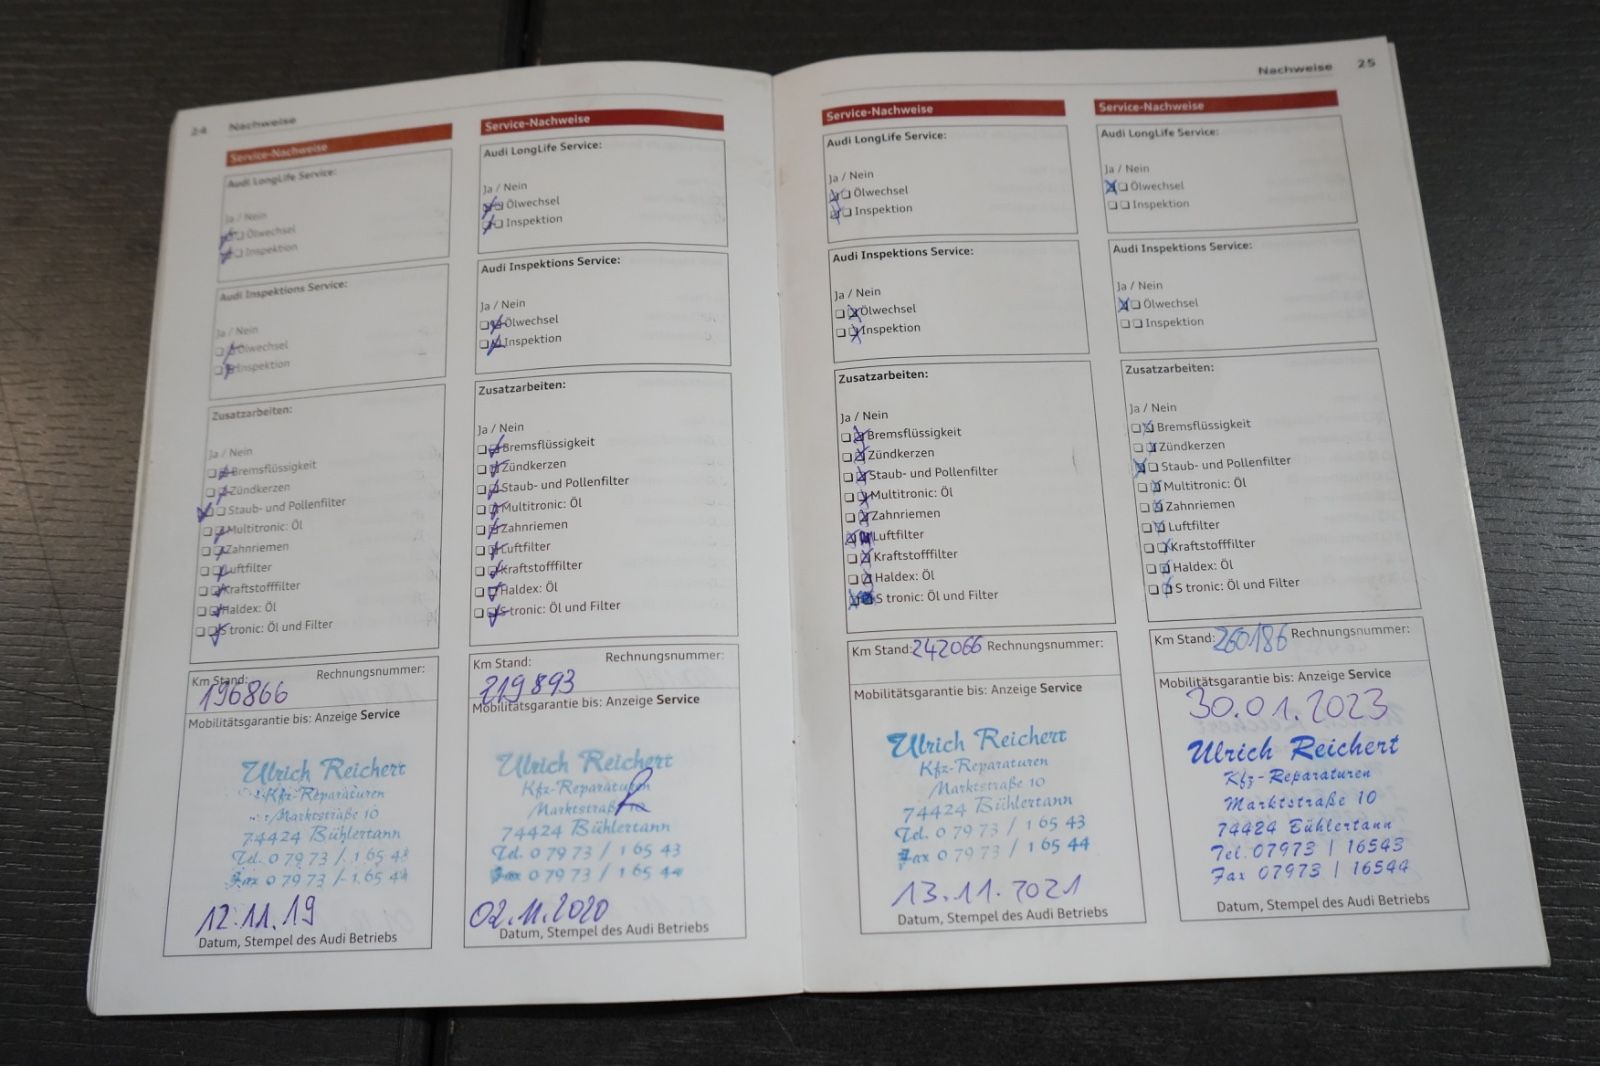 24 Nachweise
Service-Nachweise
Audi LongLife Service:
Ja / Nein
Ölwechsel
Inspektion
Audi Inspektions Service:
Ja / Nein
Ölwechsel
Inspektion
Zusatzarbeiten:
Ja / Nein
Bremsflüssigkeit
Zündkerzen
Staub- und Pollenfilter
Multitronic: Öl
Zahnriemen
Luftfilter
Kraftstofffilter
Haldex: Öl
S tronic: Öl und Filter
Km Stand: Rechnungsnummer:
196866
Mobilitätsgarantie bis: Anzeige Service
Ulrich Reichert
Kfz-Reparaturen
Marktstraße 10
74424 Bühlertann
Tel. 0 79 73 / 1 65 43
Fax 0 79 73 / 1 65 44
12.11.19
Datum, Stempel des Audi Betriebs
Service-Nachweise
Audi LongLife Service:
Ja / Nein
Ölwechsel
Inspektion
Audi Inspektions Service:
Ja / Nein
Ölwechsel
Inspektion
Zusatzarbeiten:
Ja / Nein
Bremsflüssigkeit
Zündkerzen
Staub- und Pollenfilter
Multitronic: Öl
Zahnriemen
Luftfilter
Kraftstofffilter
Haldex: Öl
S tronic: Öl und Filter
Km Stand: Rechnungsnummer:
219893
Mobilitätsgarantie bis: Anzeige Service
Ulrich Reichert
Kfz-Reparaturen
Marktstraße 10
74424 Bühlertann
Tel. 0 79 73 / 1 65 43
Fax 0 79 73 / 1 65 44
02.11.2020
Datum, Stempel des Audi Betriebs
Nachweise 25
Service-Nachweise
Audi LongLife Service:
Ja / Nein
Ölwechsel
Inspektion
Audi Inspektions Service:
Ja / Nein
Ölwechsel
Inspektion
Zusatzarbeiten:
Ja / Nein
Bremsflüssigkeit
Zündkerzen
Staub- und Pollenfilter
Multitronic: Öl
Zahnriemen
Luftfilter
Kraftstofffilter
Haldex: Öl
S tronic: Öl und Filter
Km Stand: 242066 Rechnungsnummer:
Mobilitätsgarantie bis: Anzeige Service
Ulrich Reichert
Kfz-Reparaturen
Marktstraße 10
74424 Bühlertann
Tel. 0 79 73 / 1 65 43
Fax 0 79 73 / 1 65 44
13.11.2021
Datum, Stempel des Audi Betriebs
Service-Nachweise
Audi LongLife Service:
Ja / Nein
Ölwechsel
Inspektion
Audi Inspektions Service:
Ja / Nein
Ölwechsel
Inspektion
Zusatzarbeiten:
Ja / Nein
Bremsflüssigkeit
Zündkerzen
Staub- und Pollenfilter
Multitronic: Öl
Zahnriemen
Luftfilter
Kraftstofffilter
Haldex: Öl
S tronic: Öl und Filter
Km Stand: 260186 Rechnungsnummer:
Mobilitätsgarantie bis: Anzeige Service
30.01.2023
Ulrich Reichert
Kfz-Reparaturen
Marktstraße 10
74424 Bühlertann
Tel. 07973 | 16543
Fax 07973 | 16544
Datum, Stempel des Audi Betriebs